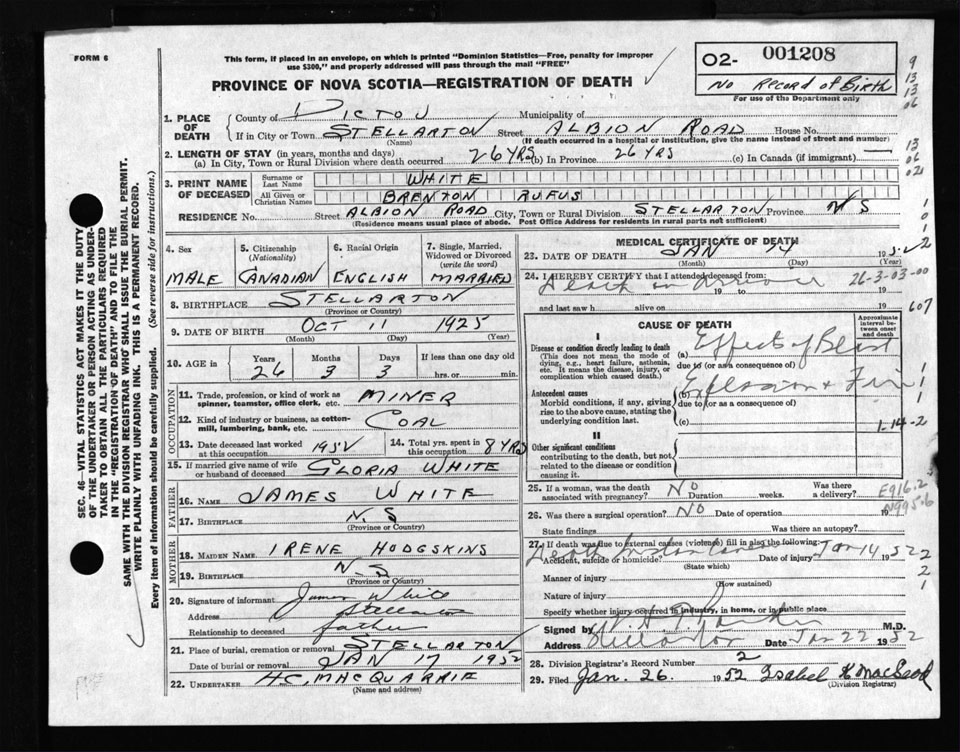 FORM 6
This form, if placed in an envelope, on which is printed "Dominion Statistics—Free, penalty for improper
use $300," and properly addressed will pass through the mail "FREE"
PROVINCE OF NOVA SCOTIA—REGISTRATION OF DEATH
02- 001208
No Record of Birth
For use of the Department only
9
13
13
06
13
06
021
1. PLACE OF DEATH
County of PICTOU Municipality of
If in City or Town STELLARTON Street ALBION ROAD House No.
(Name) (If death occurred in a hospital or institution, give the name instead of street and number)
2. LENGTH OF STAY (in years, months and days)
(a) In City, Town or Rural Division where death occurred 26 YRS (b) In Province 26 YRS (c) In Canada (if immigrant) —
3. PRINT NAME OF DECEASED
Surname or Last Name WHITE
All Given or Christian Names BRENTON RUFUS
RESIDENCE No. Street ALBION ROAD City, Town or Rural Division STELLARTON Province NS
(Residence means usual place of abode. Post Office Address for residents in rural parts not sufficient)
4. Sex
MALE
5. Citizenship
(Nationality)
CANADIAN
6. Racial Origin
ENGLISH
7. Single, Married, Widowed or Divorced
(write the word)
MARRIED
8. BIRTHPLACE STELLARTON
(Province or Country)
9. DATE OF BIRTH OCT 11 1925
(Month) (Day) (Year)
10. AGE IN
Years 26 Months 3 Days 3
If less than one day old
hrs. or min.
OCCUPATION
11. Trade, profession, or kind of work as spinner, teamster, office clerk, etc. MINER
12. Kind of industry or business, as cotton-mill, lumbering, bank, etc. COAL
13. Date deceased last worked at this occupation 195V
14. Total yrs. spent in this occupation 8 YRS
15. If married give name of wife or husband of deceased GLORIA WHITE
FATHER
16. NAME JAMES WHITE
17. BIRTHPLACE N.S
(Province or Country)
MOTHER
18. MAIDEN NAME IRENE HODGSKINS
19. BIRTHPLACE N.S
(Province or Country)
20. Signature of informant James White
Address Stellarton
Relationship to deceased father
21. Place of burial, cremation or removal STELLARTON
Date of burial or removal JAN 17 1952
22. UNDERTAKER H.C. MACQUARRIE
(Name and address)
MEDICAL CERTIFICATE OF DEATH
23. DATE OF DEATH JAN 14 195V
(Month) (Day) (Year)
24. I HEREBY CERTIFY that I attended deceased from
Death on arrival 26-3-03-00
19 to 19
and last saw h alive on 19
607
CAUSE OF DEATH
Approximate interval between onset and death
I
Disease or condition directly leading to death
(This does not mean the mode of dying, e.g., heart failure, asthenia, etc. It means the disease, injury, or complication which caused death.)
(a) Effects of Blast
due to (or as a consequence of)
Antecedent causes
Morbid conditions, if any, giving rise to the above cause, stating the underlying condition last
(b) Explosion + Fire
due to (or as a consequence of)
(c)
1-14-2
II
Other significant conditions
contributing to the death, but not related to the disease or condition causing it.
25. If a woman, was the death associated with pregnancy? NO Duration weeks. Was there a delivery?
E916.2
N995.6
26. Was there a surgical operation? NO Date of operation 19
State findings Was there an autopsy?
27. If death was due to external causes (violence) fill in also the following:
Accident, suicide or homicide? Date of injury Jan 14 1952
(State which)
Manner of injury
(How sustained)
Nature of injury
Specify whether injury occurred in industry, in home, or in public place
Signed by M.D.
Address Stellarton Date Jan 22 1952
28. Division Registrar's Record Number 2
29. Filed Jan. 26. 1952 Isabel K MacLeod
(Division Registrar)
SEC. 46—VITAL STATISTICS ACT MAKES IT THE DUTY
OF THE UNDERTAKER OR PERSON ACTING AS UNDER-
TAKER TO OBTAIN ALL THE PARTICULARS REQUIRED
IN THE "REGISTRATION OF DEATH" AND TO FILE THE
SAME WITH THE DIVISION REGISTRAR WHO SHALL ISSUE THE BURIAL PERMIT.
WRITE PLAINLY WITH UNFADING INK. THIS IS A PERMANENT RECORD.
Every item of information should be carefully supplied. (See reverse side for instructions.)